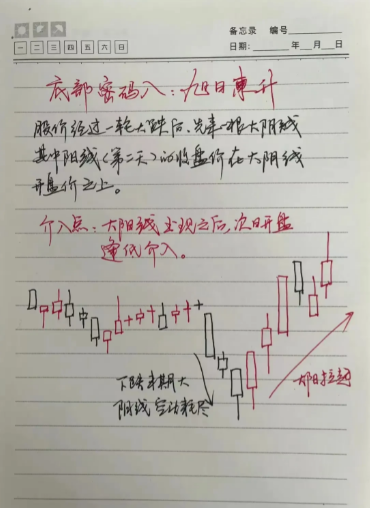 备忘录 编号
一 二 三 四 五 六 日
日期: 年 月 日
底部密码八:旭日东升
股价经过一轮大跌后,先来一根大阴线
其中阳线(第二天)的收盘价在大阴线
开盘价之上。
介入点:大阳线出现之后,次日开盘
逢低介入。
下跌末期大
阴线空动耗尽
大阳拉起